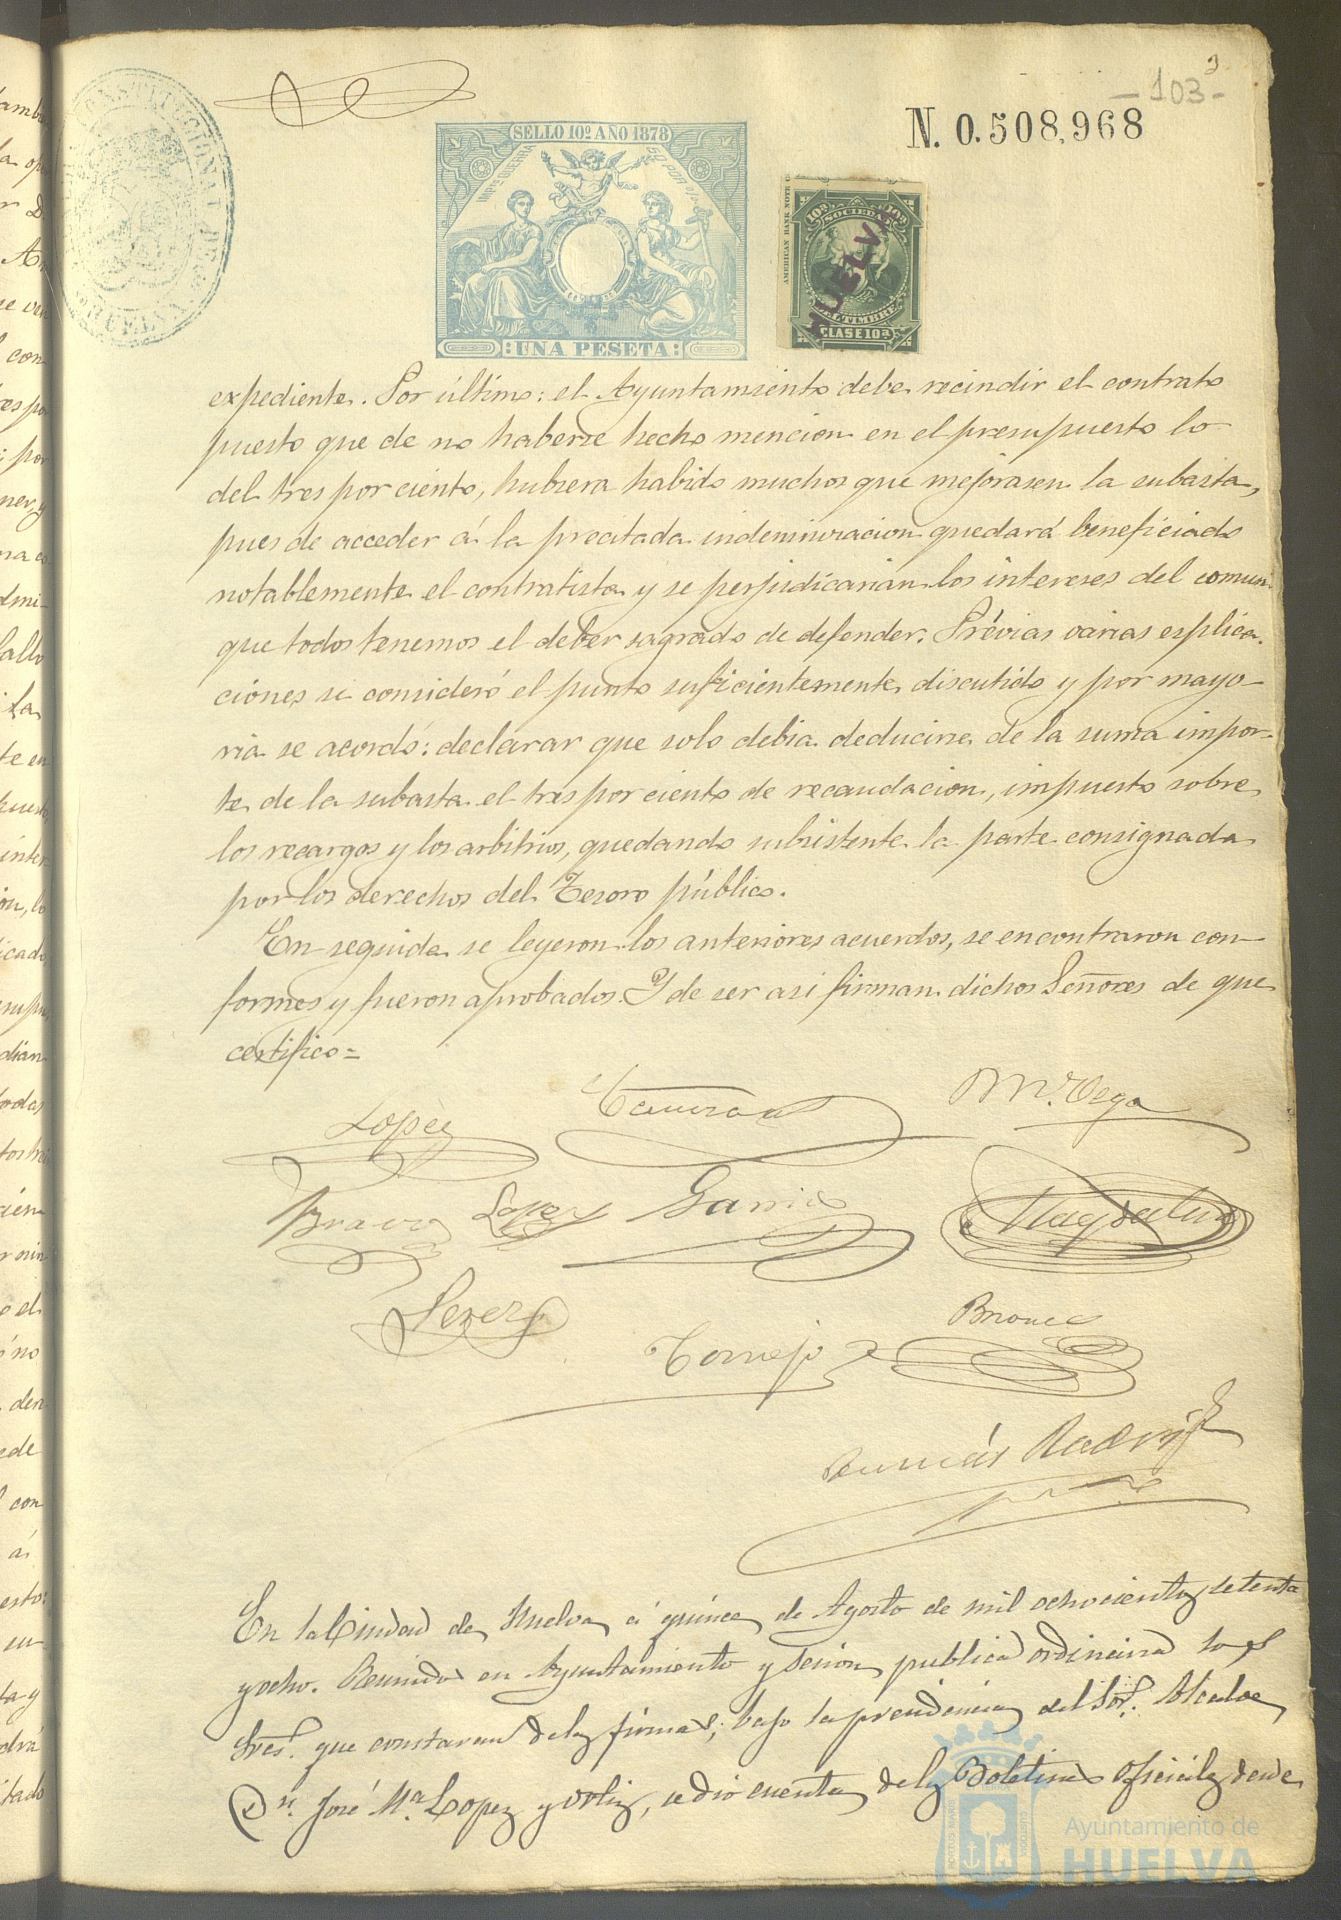 -103-
N. 0.508,968
SELLO 10º AÑO 1878
IMPTO GUERRA 50 POR %
UNA PESETA
AMERICAN BANK NOTE
10ª SOCIEDAD 10ª
HUELVA
DEL TIMBRE
CLASE 10ª
CONSTITUCIONAL DE HUELVA
expediente. Por último: el Ayuntamiento debe recindir el contrato
puesto que de no haberse hecho mencion en el presupuesto lo
del tres por ciento, hubiera habido muchos que mejorasen la subasta,
pues de acceder á la precitada indemnizacion quedará beneficiado
notablemente el contratista y se perjudicarian los intereses del comun
que todos tenemos el deber sagrado de defender. Prévias varias esplica-
ciones se consideró el punto suficientemente discutido y por mayo-
ria se acordó: declarar que solo debia deducirse de la suma impor-
te de la subasta el tres por ciento de recaudacion, impuesto sobre
los recargos y los arbitrios, quedando subsistente la parte consignada
por los derechos del Tesoro público.
En seguida se leyeron los anteriores acuerdos, se encontraron con-
formes y fueron aprobados. Y de ser asi firman dichos Señores de que
certifico=
Lopez
Mº. Vega
Bravo Lopez Garrido
Perez
Tornejo
En la Ciudad de Huelva á quince de Agosto de mil ochocientos setenta
y ocho. Reunidos en Ayuntamiento y sesion publica ordinaria los
Sres. que constaran de las firmas, bajo la presidencia del Sor. Alcalde
Dn. José Mª Lopez y Ortiz, se dio cuenta de los Boletines oficiales desde
Ayuntamiento de
HUELVA